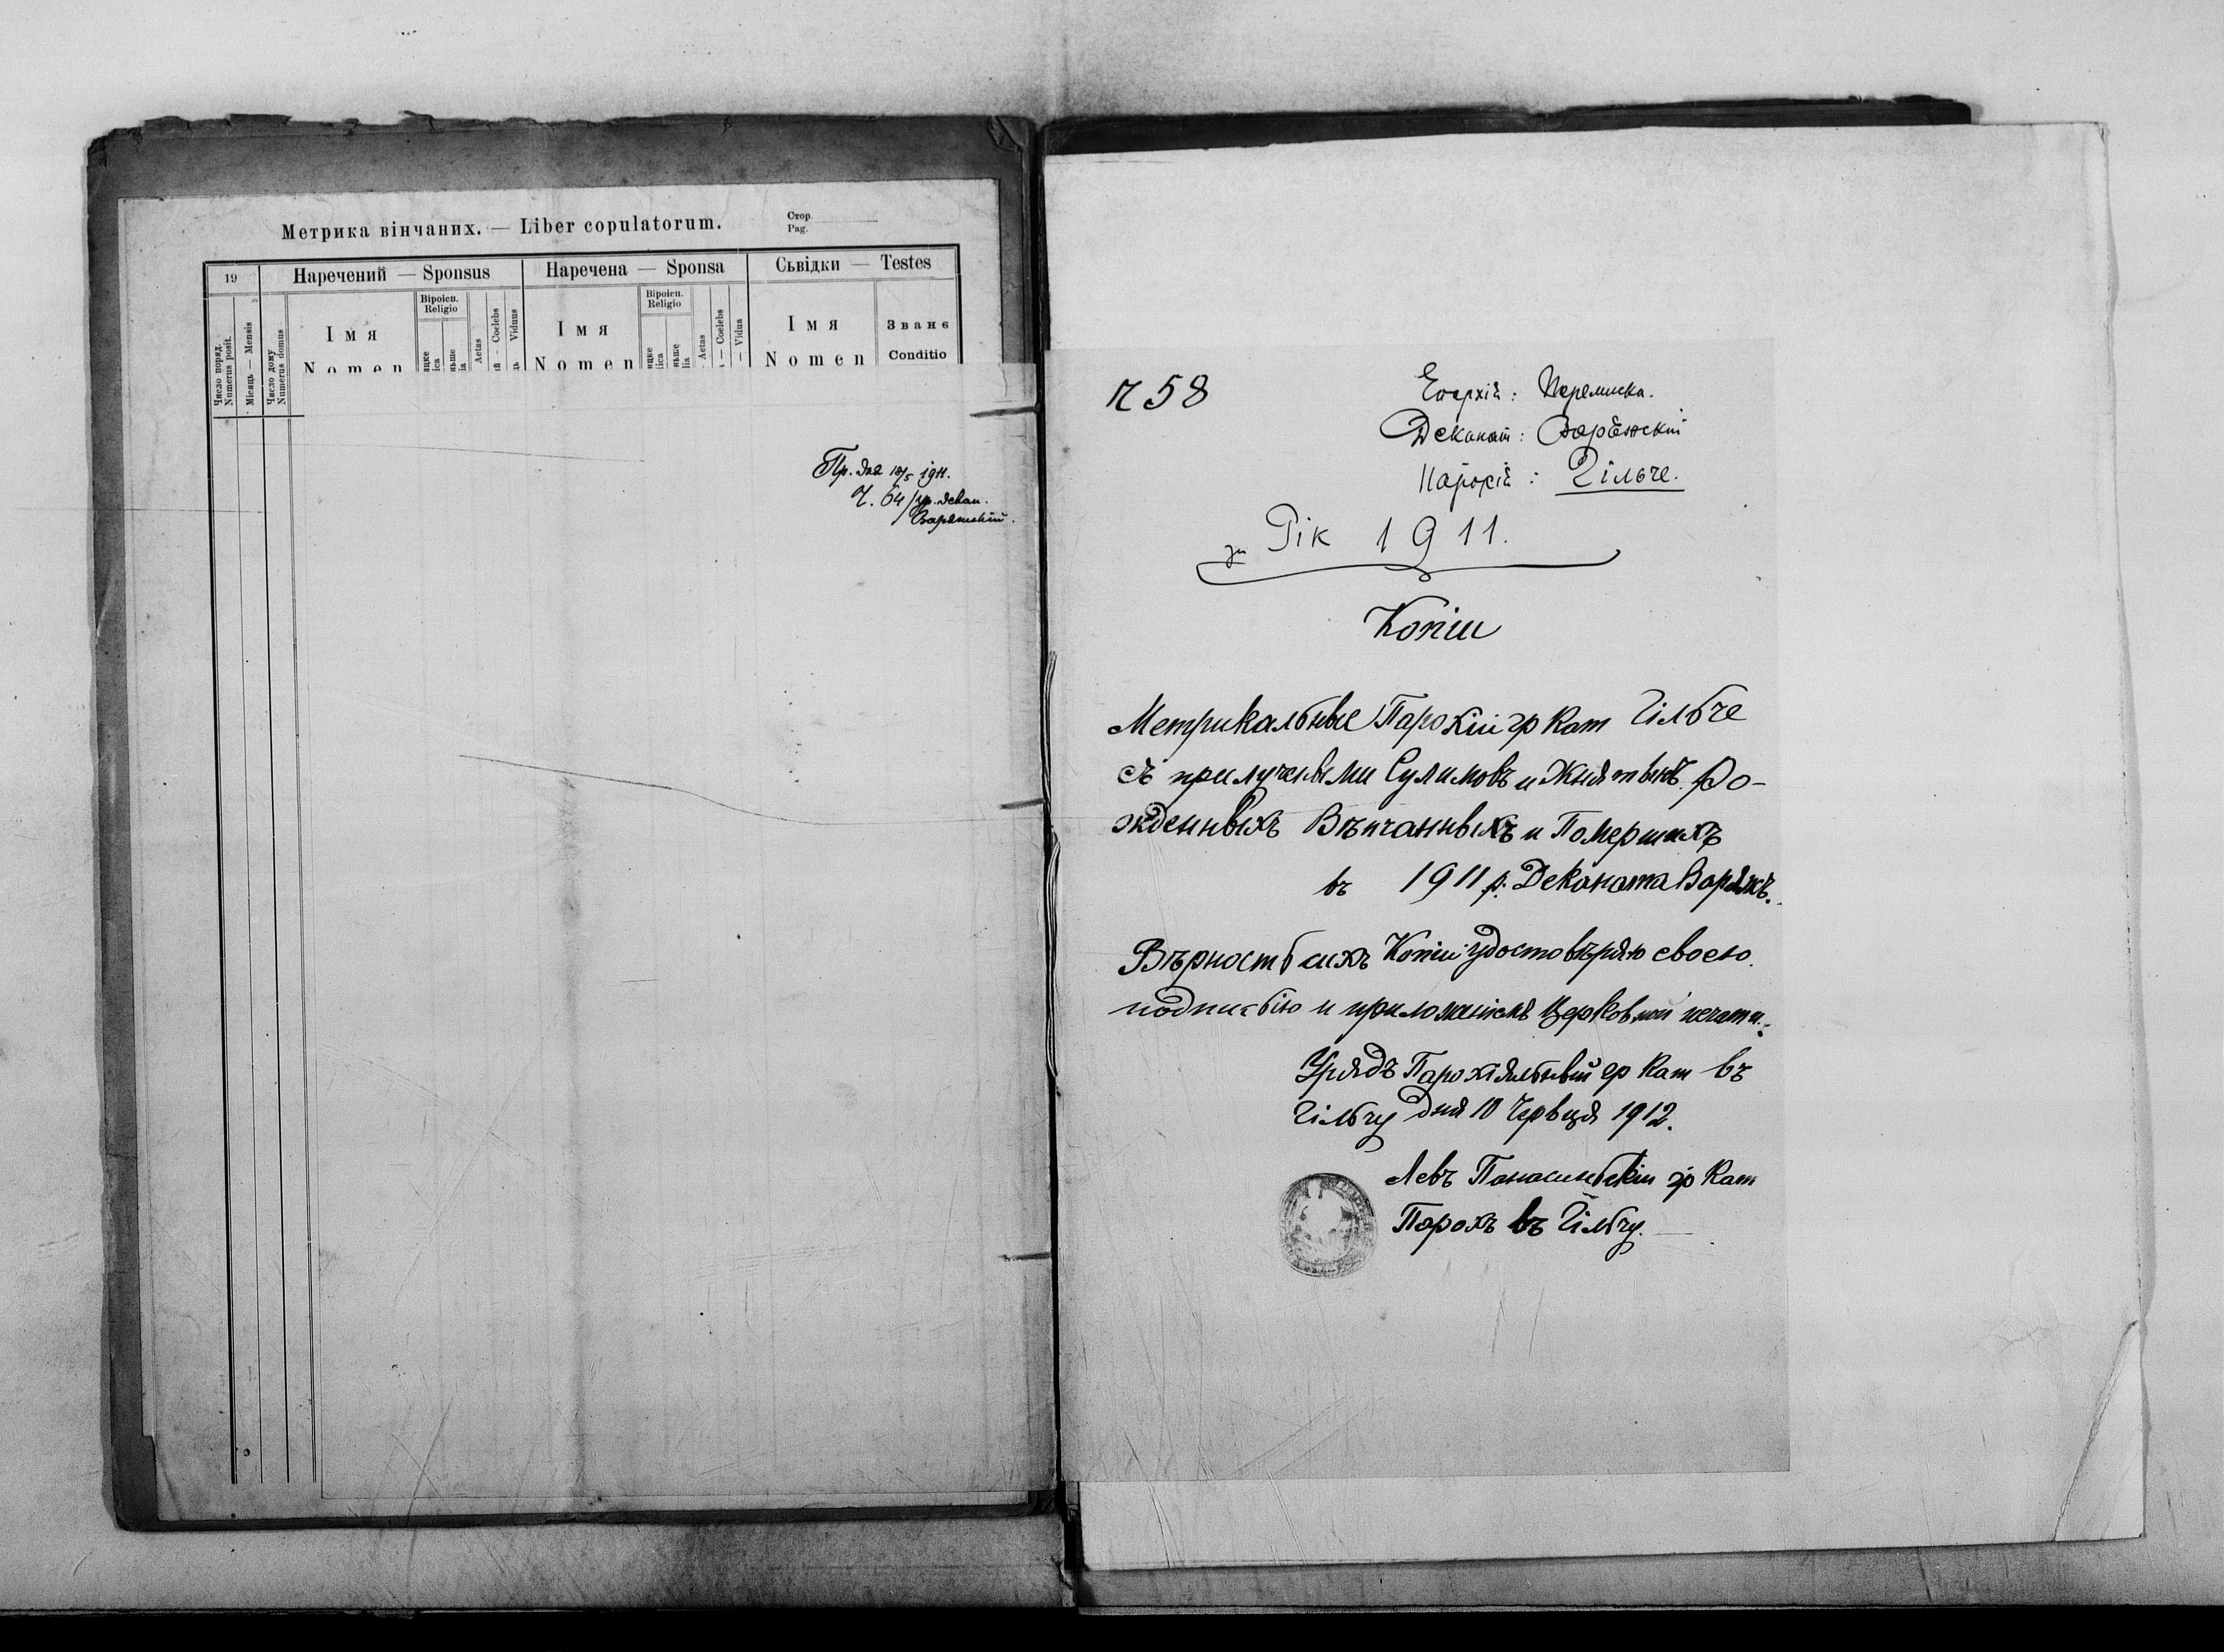 Метрика вінчаних. — Liber copulatorum.
Стор.
Pag.
19
Наречений — Sponsus
Наречена — Sponsa
Сьвідки — Testes
Число поряд.
Numerus posit.
Місяць — Mensis
Число дому
Numerus domus
Імя
Nomen
Віроісп.
Religio
Aetas
Coelebs
Viduus
Імя
Nomen
Віроісп.
Religio
Aetas
Coelebs
Vidua
Імя
Nomen
Званє
Conditio
Пр. дня 18/5 1911.
Ч. 64/ур. декан.
Варяжский.
58
Епархій: Перемиска.
Деканат: Варѣжскій
Парохій: Хільче.
за Рік 1911.
Копіи
Метрикальныє Парохіи гр Кат Хільче
съ прилучеными Сулимовъ и Жнятынъ. Ро-
жденныхъ Вѣнчанныхъ и Помершихъ
въ 1911 р. Деканата Варяжъ.
Вѣрность сихъ Копіи удостовѣряю своєю
подписью и приложеніємъ Церковной печати.
Урядъ Парохіяльный гр Кат въ
Хільчу дня 10 Червця 1912.
Левъ гр Кат
Парохъ въ Хільчу.